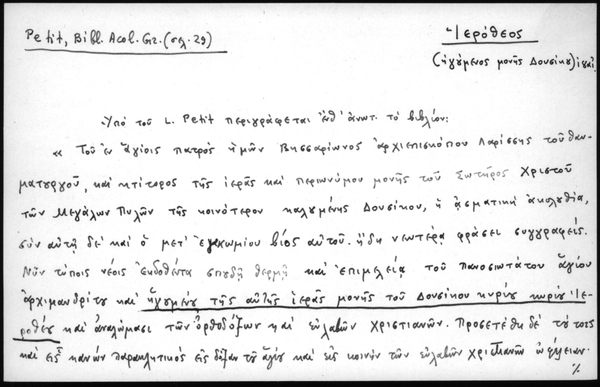 Petit, Bibl. Acol. Gr. (σελ. 29)
Ἱερόθεος
(ἡγούμενος μονῆς Δουσίκου)
Ὑπὸ τοῦ L. Petit περιγράφεται ἔνθ' ἀνωτ. τὸ βιβλίον:
« Τοῦ ἐν ἁγίοις πατρὸς ἡμῶν Βησσαρίωνος ἀρχιεπισκόπου Λαρίσσης τοῦ θαυ-
ματουργοῦ, καὶ κτίτορος τῆς ἱερᾶς καὶ περιωνύμου μονῆς τοῦ Σωτῆρος Χριστοῦ
τῶν Μεγάλων Πυλῶν τῆς κοινότερον καλουμένης Δουσίκου, ἡ ᾀσματικὴ ἀκολουθία,
σὺν αὐτῇ δὲ καὶ ὁ μετ' ἐγκωμίου βίος αὐτοῦ. ἤδη νεωτέρᾳ φράσει συγγραφείς.
Νῦν τύποις νέοις ἐκδοθέντα σπουδῇ θερμῇ καὶ ἐπιμελείᾳ τοῦ πανοσιωτάτου ἁγίου
ἀρχιμανδρίτου καὶ ἡγουμένου τῆς αὐτῆς ἱερᾶς μονῆς τοῦ Δουσίκου κυρίου κυρίου Ἱε-
ροθέου καὶ ἀναλώμασι τῶν ὀρθοδόξων καὶ εὐλαβῶν χριστιανῶν. Προσετέθη δὲ τούτοις
καὶ εἷς κανὼν παρακλητικὸς εἰς δόξαν τοῦ ἁγίου καὶ εἰς κοινὴν τῶν εὐλαβῶν χριστιανῶν ὠφέλειαν.
%